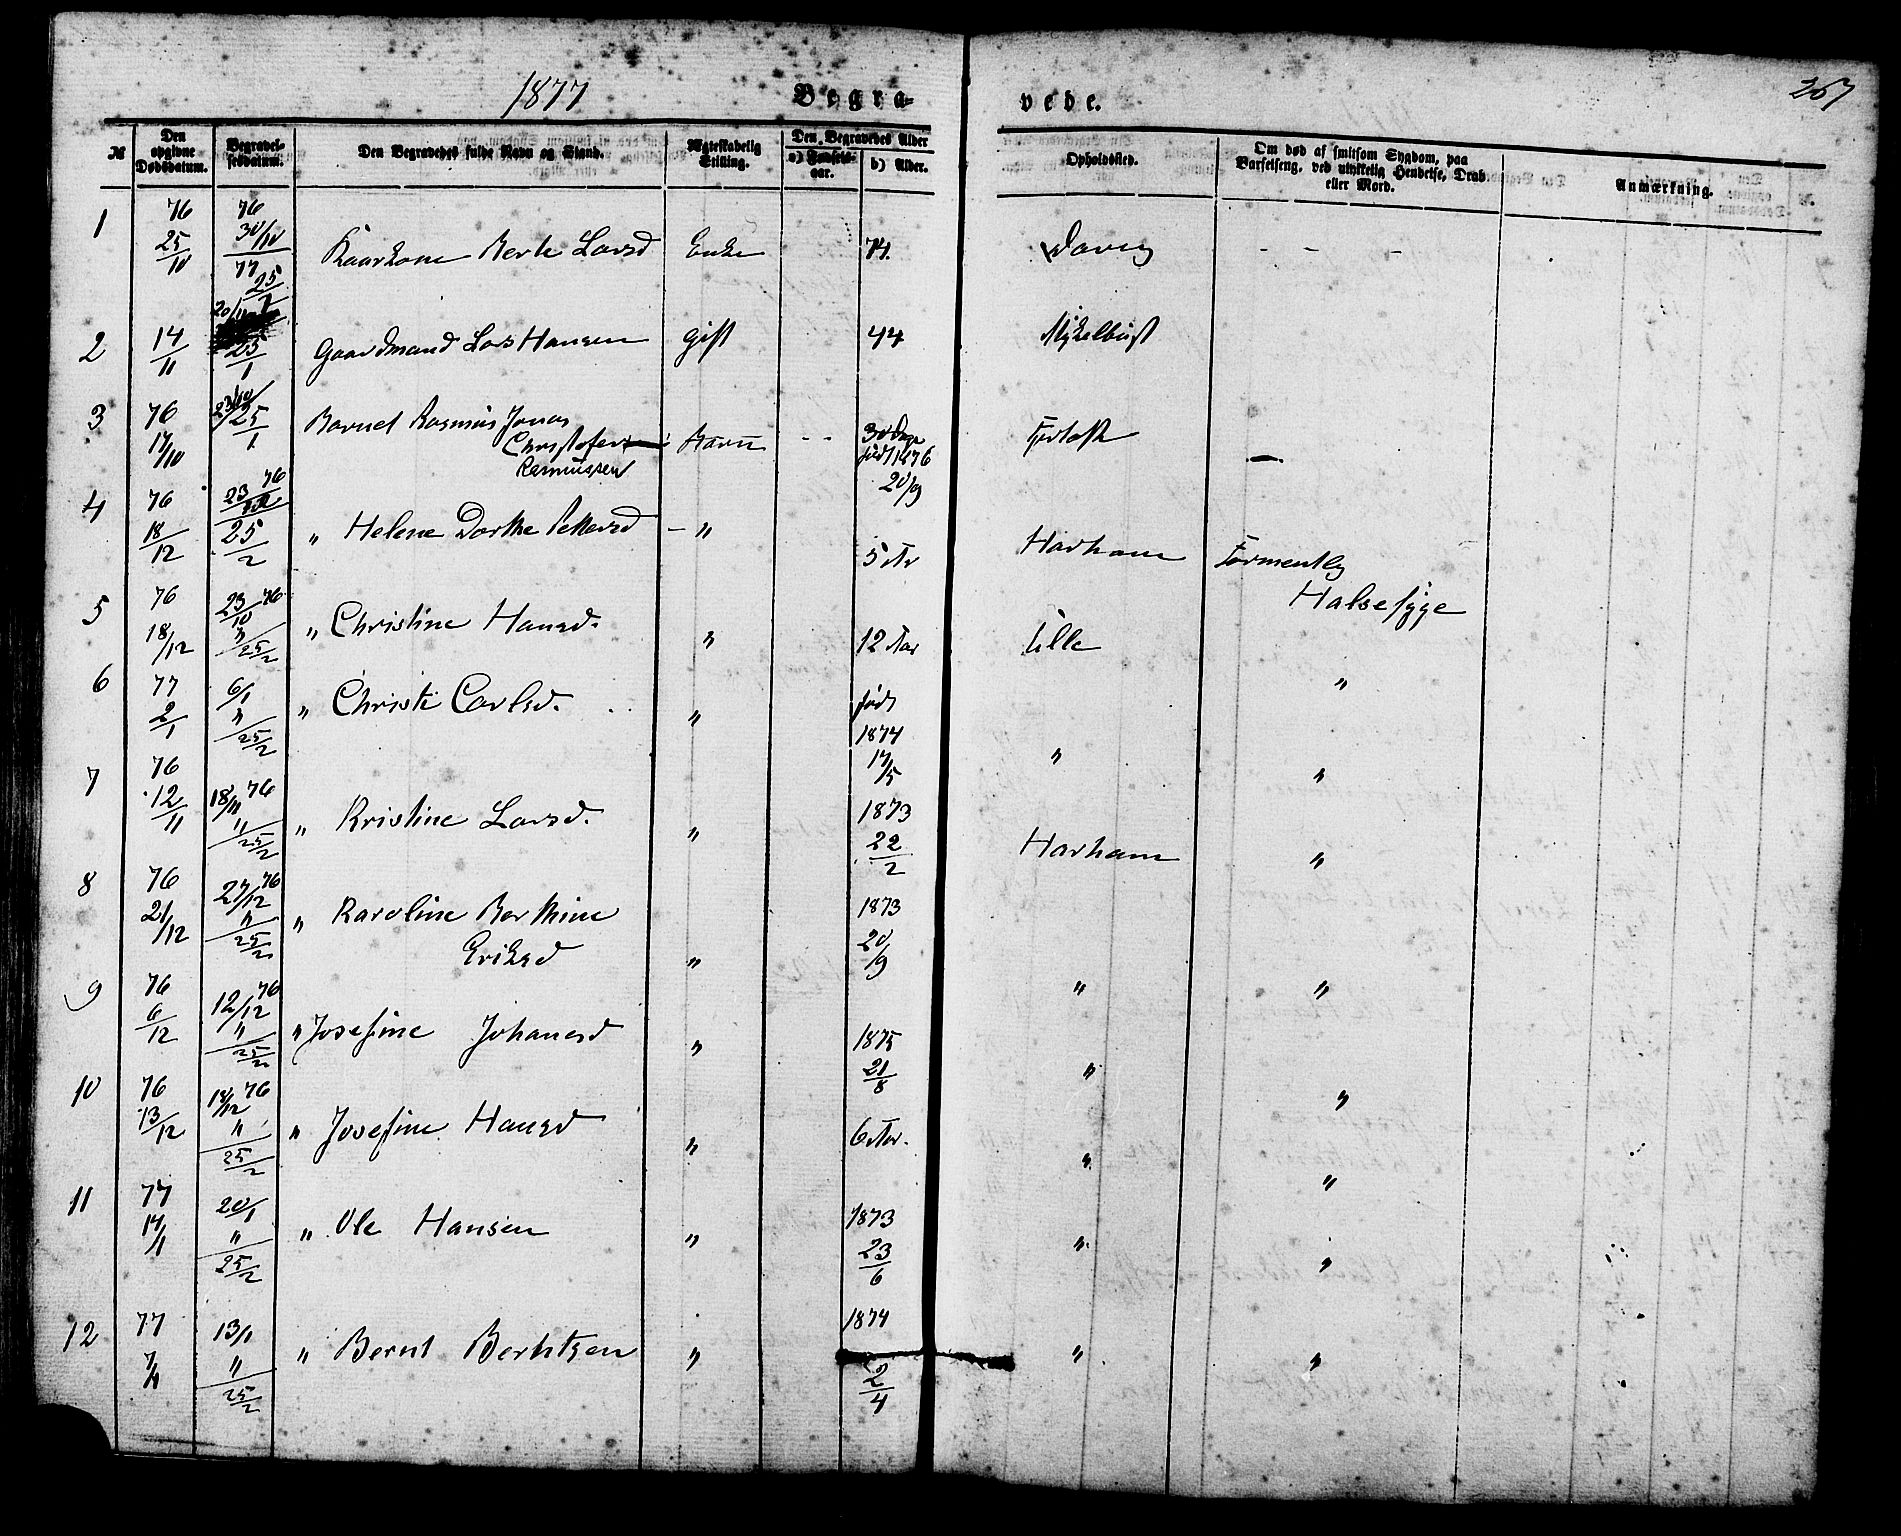 1877
Begra-
vede.
267
№
Den opgivne Dødsdatum.
Begravelsesdatum.
Den Begravedes fulde Navn og Stand.
Ægteskabelig Stilling.
Den Begravedes Alder
a) Fødsels-aar.
b) Alder.
Opholdssted.
Om død af smitsom Sygdom, paa Barselseng, ved ulykkelig Hendelse, Drab eller Mord.
Anmærkning.
1 76 25/10 76 30/10 77 25/ Kaarkone Berte Larsd Enke 74 - - -
2 14/11 20/11 23/1 Gaardmand Lars Hansen gift 44 Mykelbust
3 76 17/10 23/10 25/1 Barnet Rasmus Jonas
Christofer
Rasmussen Barn - - 30 Dage
født 1876
20/9 -
4 76 18/12 23 76 25/2 " Helene Dorthe Pettersd - " 5 Aar Harham Formentlig
Halsesyge
5 76 18/12 23/10 76 " 25/2 " Christine Hansd. " 12 Aar Ulle "
6 77 2/1 6/1 " 25/2 " Christi Carlsd. " født
1874
17/5 " "
7 76 12/11 18/11 76 " 25/2 " Kristine Larsd. " 1873
22/2 Harham "
8 76 21/12 27/12 76 " 25/2 " Karoline Berthine
Eriksd " 1873
20/9 " "
9 76 6/12 12/12 76 " 25/2 " Josefine Johanesd " 1875
21/8 " "
10 76 13/12 18/12 76 " 25/2 " Josefine Hansd " 6 Aar. " "
11 77 14/1 20/1 " 25/2 " Ole Hansen " 1873
23/6 " "
12 77 13/1 " 25/2 " Bernt Berntsen " 1874
2/4 " "